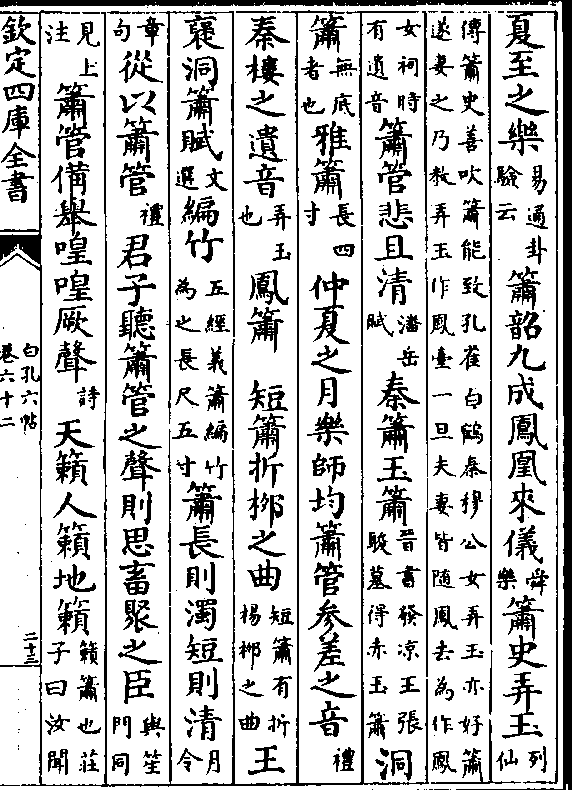 夏至之樂易通卦驗云簫韶九成鳳凰來儀舜樂簫史弄玉列仙
傳簫史善吹簫能致孔雀白鶴秦穆公女弄玉亦好簫
遂妻之乃教弄玉作鳳臺一旦夫妻皆随鳳去為作鳳
女祠時有遺音簫管悲且清潘岳賦秦簫玉簫晉書發凉王張駿墓得赤玉簫洞
簫無底者也雅簫長四寸仲夏之月樂師均簫管参差之音禮
秦樓之遺音弄玉也鳳簫 短簫折栁之曲短簫有折楊栁之曲王
襃洞簫賦文選編竹五經義簫編竹為之長尺五寸簫長則濁短則清月令
章句從以簫管禮君子聽簫管之聲則思畜聚之臣與笙門同
見上注簫管備舉喤喤厥聲詩天籟人籟地籟籟簫也莊子曰汝聞
欽定四庫全書
白孔六帖
卷六十二
二十三